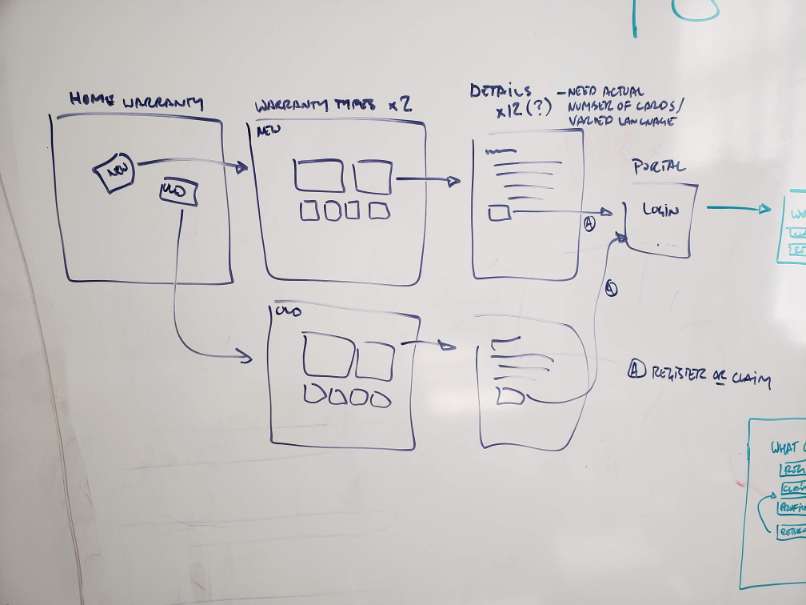 HOME WARRANTY
NEW
OLD
WARRANTY TYPES x2
NEW
DETAILS
x12 (?)
- NEED ACTUAL
NUMBER OF CARDS/
VARIED LANGUAGE
PORTAL
LOGIN
A
OLD
A
A REGISTER OR CLAIM
WHAT